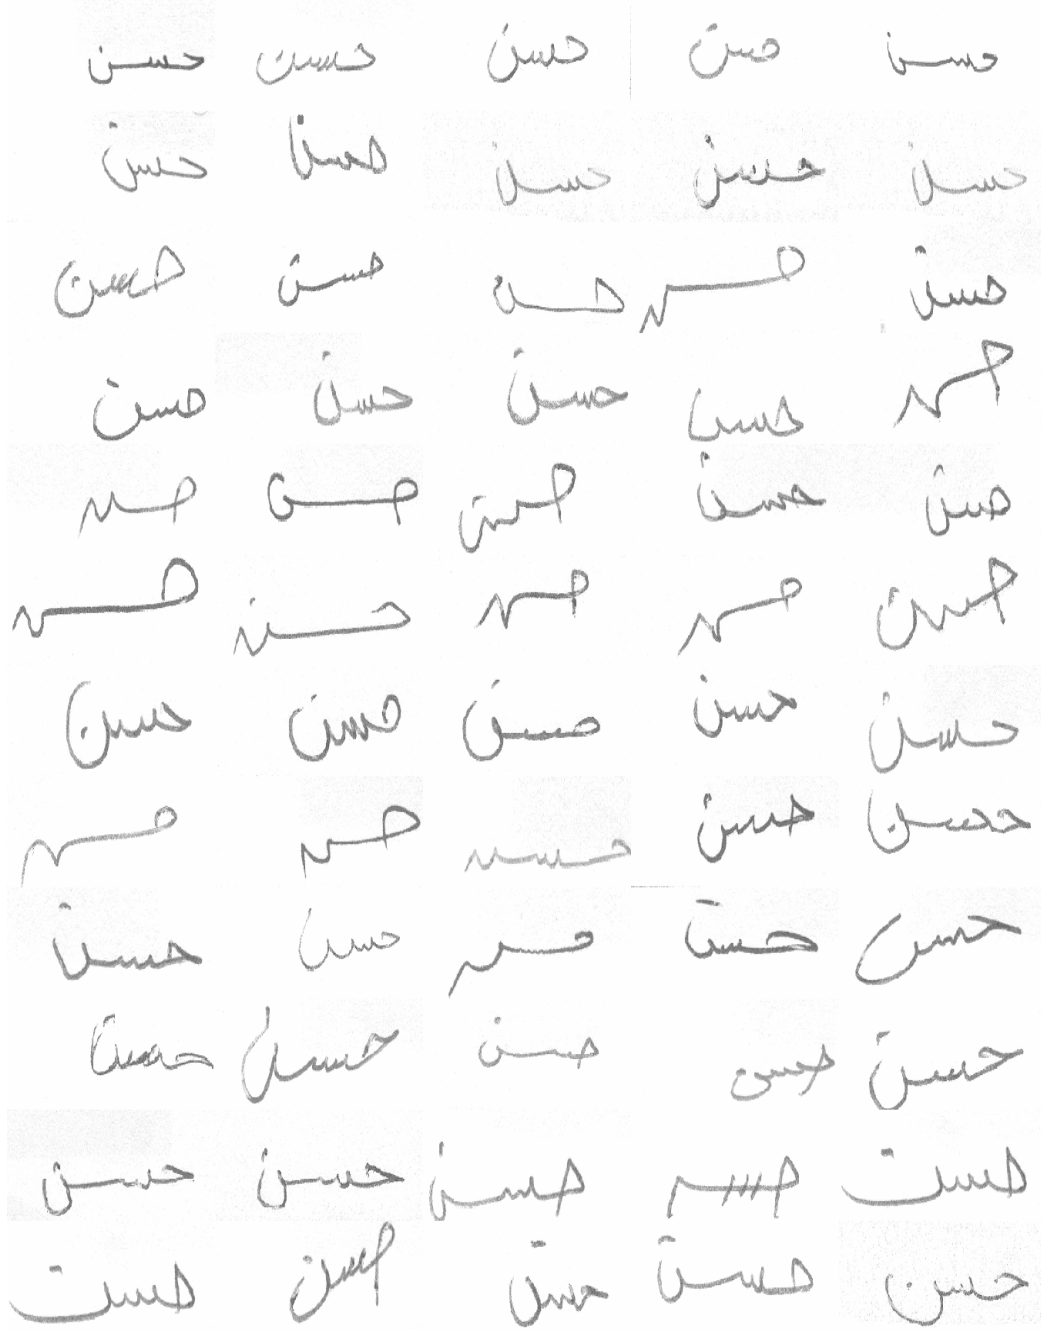 حسن حسن حسن حسن حسن
حسن حسن حسن حسن حسن
حسن حسن حسن حسن حسن
حسن حسن حسن حسن حسن
حسن حسن حسن حسن حسن
حسن حسن حسن حسن حسن
حسن حسن حسن حسن حسن
حسن حسن حسن حسن حسن
حسن حسن حسن حسن حسن
حسن حسن حسن حسن حسن
حسن حسن حسن حسن حسن
حسن حسن حسن حسن حسن